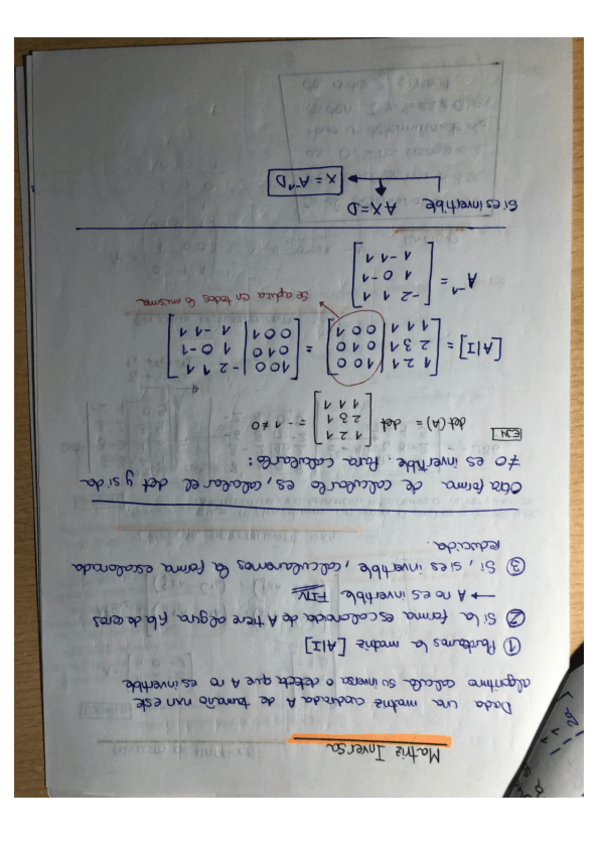 Matriz Inversa
Dada una matriz cuadrada A de tamaño nxn este
algoritmo calcula su inversa o detecta que A no es invertible
① Partimos la matriz [A|I]
② Si la forma escalonada de A tiene alguna fila de ceros
→ A no es invertible FIN
③ Si, si es invertible, calcularemos la forma escalonada
reducida.
Otra forma de calcularlo es, calcular el det y si da
≠0 es invertible. Para calcularlo:
EJM det(A) = det [1 2 1
2 3 1
1 1 1] = -1 ≠ 0
[A|I] = [1 2 1 | 1 0 0
2 3 1 | 0 1 0
1 1 1 | 0 0 1] = [1 0 0 | -2 1 1
0 1 0 | 1 0 -1
0 0 1 | 1 -1 1]
Se aplica en todos lo mismo
A⁻¹ = [-2 1 1
1 0 -1
1 -1 1]
Si es invertible AX=D
X = A⁻¹D